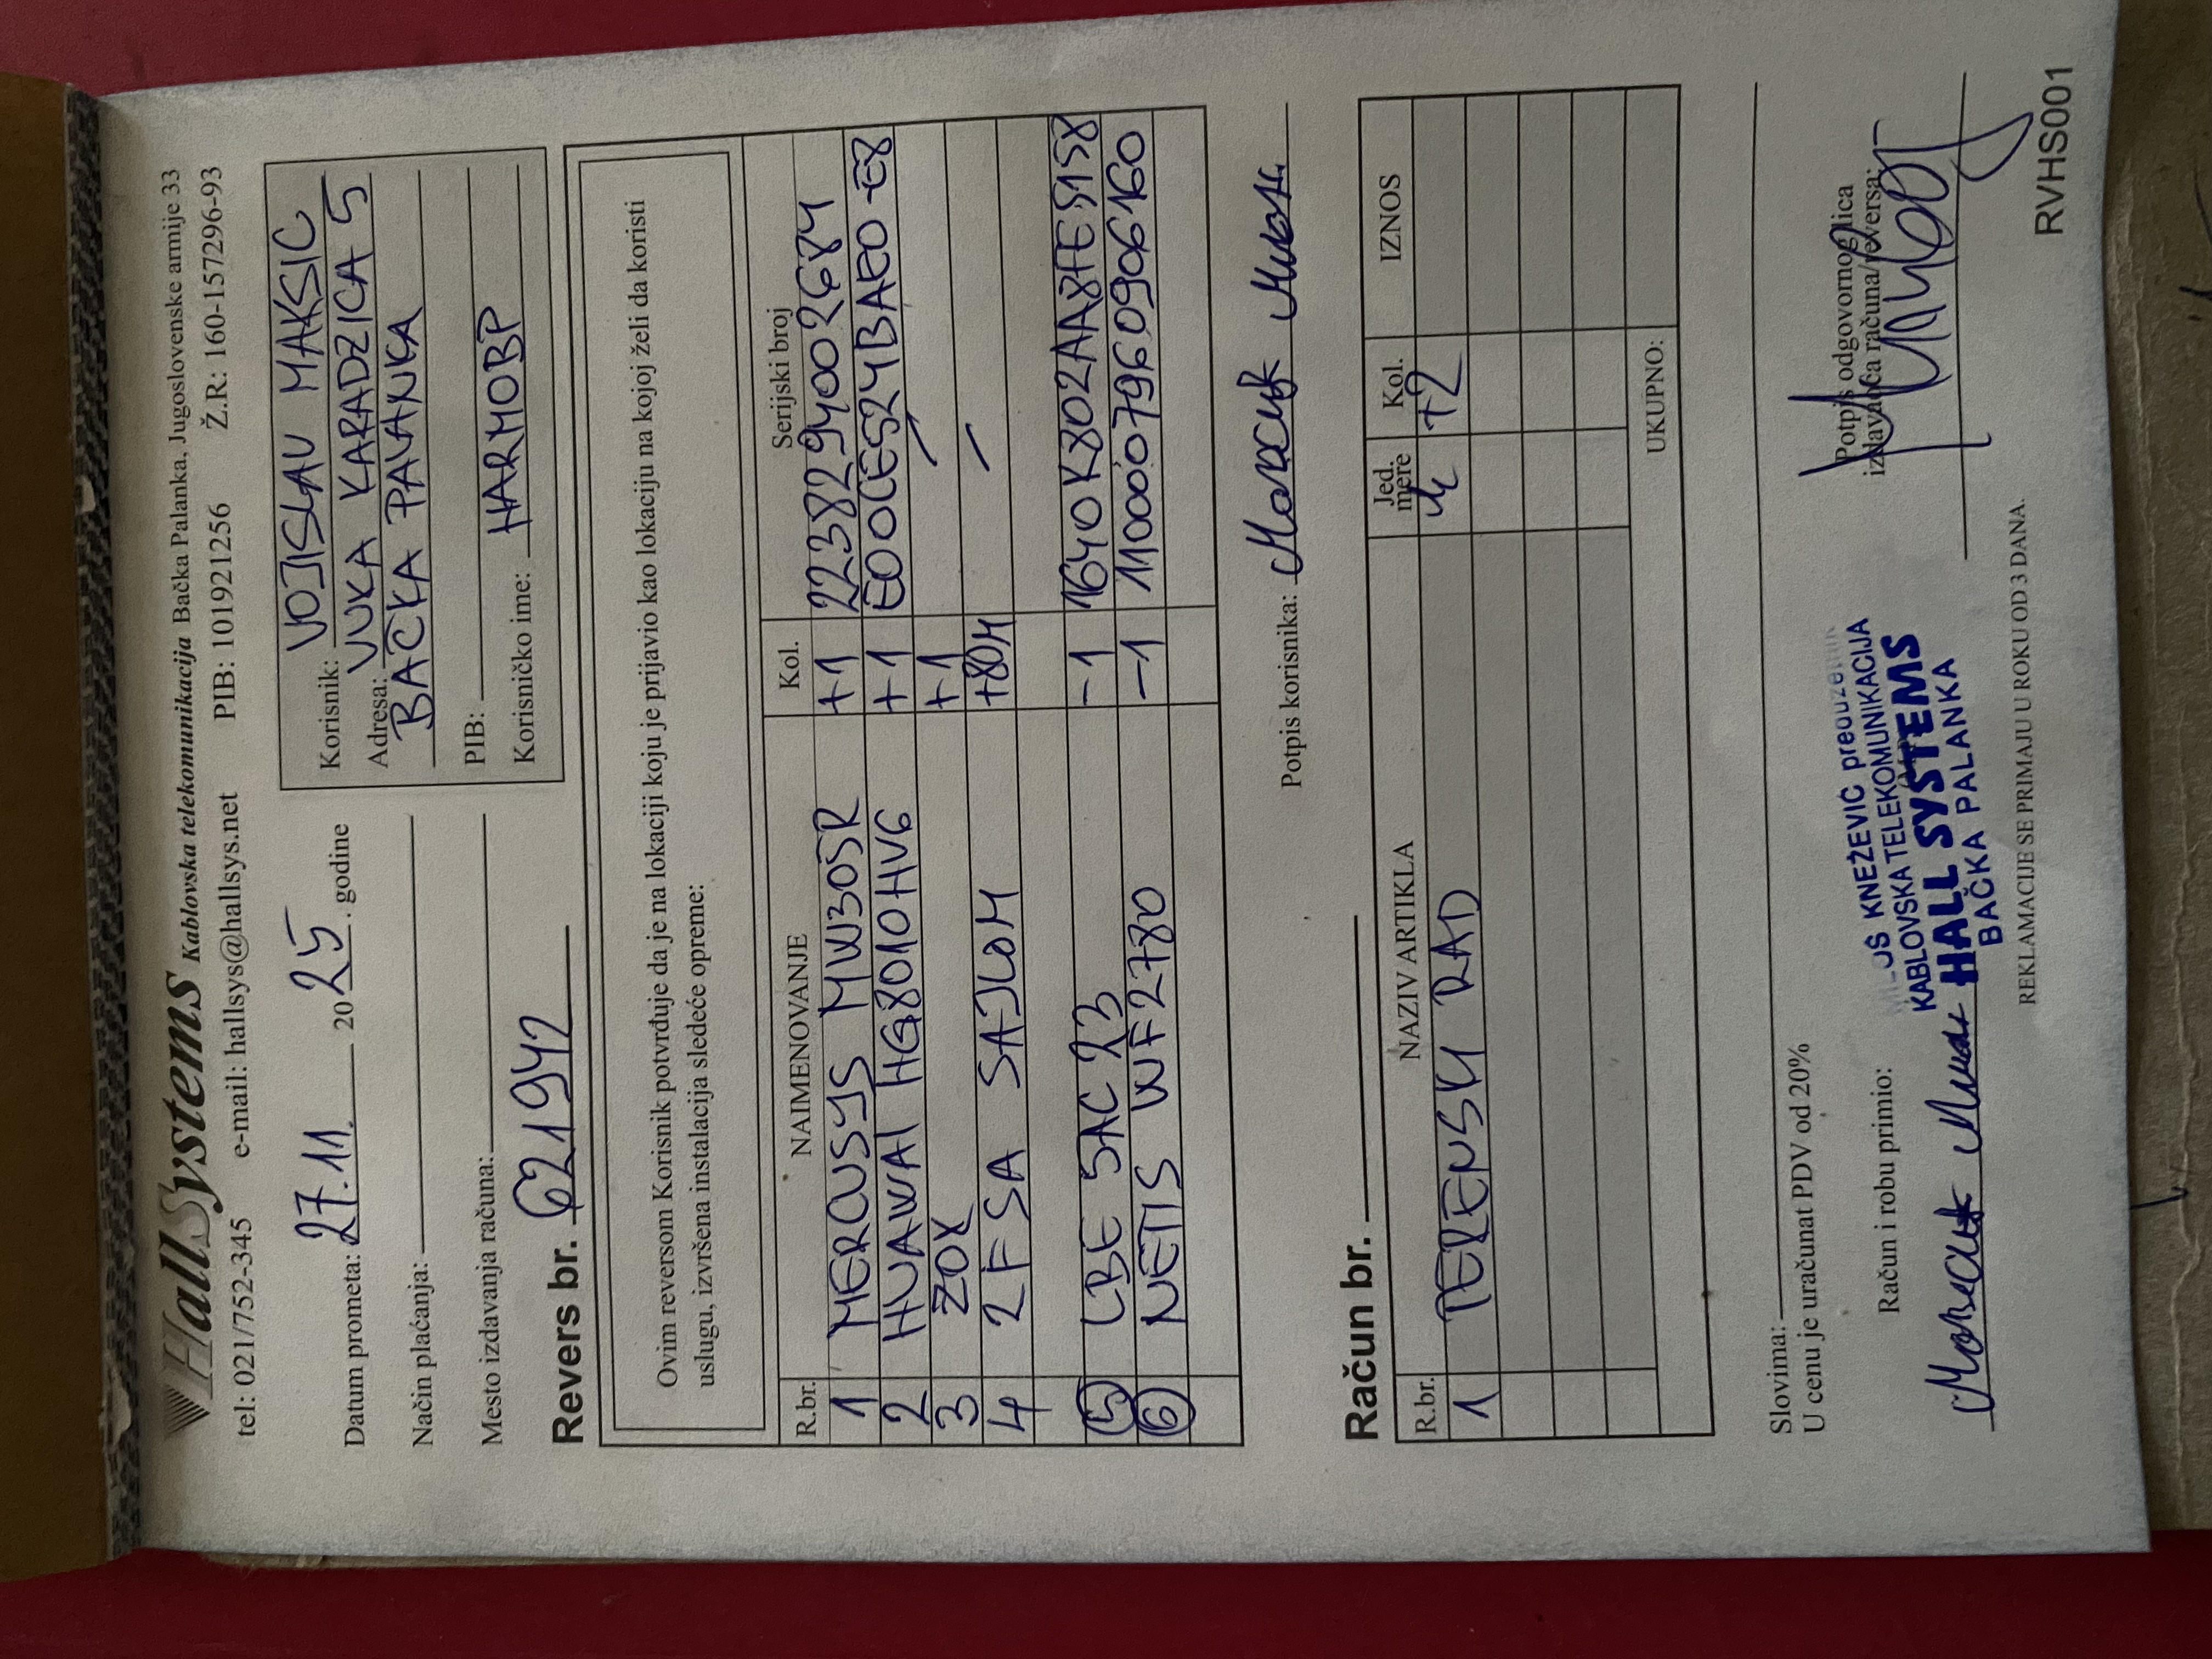 HallSystems Kablovska telekomunikacija Bačka Palanka, Jugoslovenske armije 33
tel: 021/752-345 e-mail: hallsys@hallsys.net PIB: 101921256 Ž.R: 160-157296-93
Datum prometa: 27.11. 2025. godine
Način plaćanja:
Mesto izdavanja računa:
Korisnik: VOJISLAV MAKSIC
Adresa: VUKA KARADZICA 5
BACKA PALANKA
PIB:
Korisničko ime: HARMOBP
Revers br. 621942
Ovim reversom Korisnik potvrđuje da je na lokaciji koju je prijavio kao lokaciju na kojoj želi da koristi
uslugu, izvršena instalacija sledeće opreme:
R.br. NAIMENOVANJE Kol. Serijski broj
1 MERCUSYS MW305R +1 2238294002684
2 HUAWAI HG8010HV6 +1 E00CE524BAE0-E8
3 ZOX +1 /
4 2FSA SAJLOM +80M /
5 LBE 5AC 23 -1 1640K802AA8FE5158
6 NETIS WF2780 -1 1100007960906160
Potpis korisnika:
Račun br.
R.br. NAZIV ARTIKLA Jed. mere Kol. IZNOS
1 TERENSKI RAD h +2
UKUPNO:
Slovima:
U cenu je uračunat PDV od 20%
Račun i robu primio:
KNEŽEVIĆ preduzetnik
KABLOVSKA TELEKOMUNIKACIJA
HALL SYSTEMS
BAČKA PALANKA
Potpis odgovornog lica
izdavaoca računa/reversa:
REKLAMACIJE SE PRIMAJU U ROKU OD 3 DANA.
RVHS001